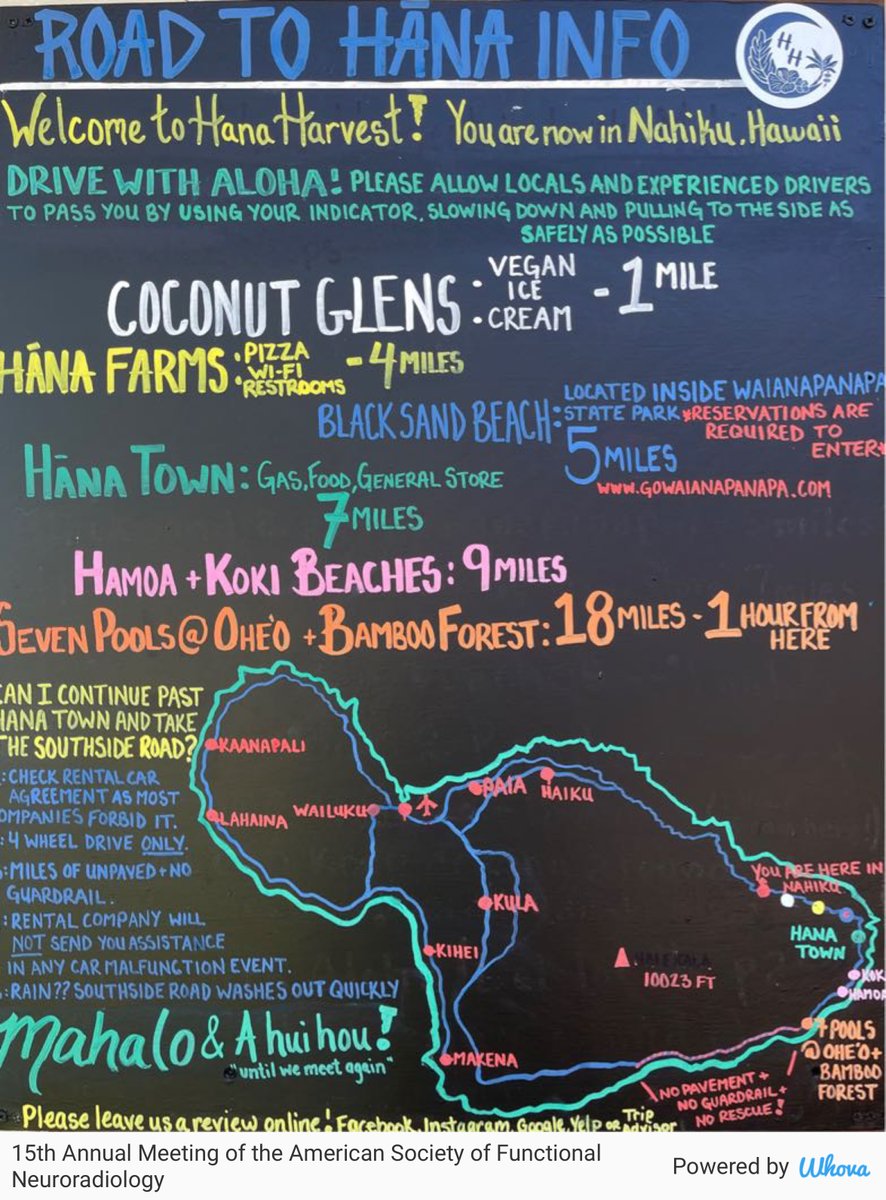 ROAD TO HĀNA INFO
H
H
Welcome to Hana Harvest! You are now in Nahiku, Hawaii
DRIVE WITH ALOHA! PLEASE ALLOW LOCALS AND EXPERIENCED DRIVERS
TO PASS YOU BY USING YOUR INDICATOR, SLOWING DOWN AND PULLING TO THE SIDE AS
SAFELY AS POSSIBLE
COCONUT GLENS: • VEGAN ICE • CREAM - 1 MILE
HĀNA FARMS: • PIZZA • WI-FI • RESTROOMS - 4 MILES
BLACK SAND BEACH: LOCATED INSIDE WAIANAPANAPA
STATE PARK *RESERVATIONS ARE
REQUIRED TO
ENTER*
5 MILES
WWW.GOWAIANAPANAPA.COM
HĀNA TOWN: GAS, FOOD, GENERAL STORE
7 MILES
HAMOA + KOKI BEACHES: 9 MILES
SEVEN POOLS @ OHE'O + BAMBOO FOREST: 18 MILES - 1 HOUR FROM HERE
CAN I CONTINUE PAST
HANA TOWN AND TAKE
THE SOUTHSIDE ROAD?
: CHECK RENTAL CAR
AGREEMENT AS MOST
COMPANIES FORBID IT.
: 4 WHEEL DRIVE ONLY.
: MILES OF UNPAVED + NO
GUARDRAIL.
: RENTAL COMPANY WILL
NOT SEND YOU ASSISTANCE
IN ANY CAR MALFUNCTION EVENT.
: RAIN?? SOUTHSIDE ROAD WASHES OUT QUICKLY
KAANAPALI
LAHAINA
WAILUKU
PAIA
HAIKU
KULA
KIHEI
MAKENA
YOU ARE HERE IN
NAHIKU
HANA
TOWN
KOKI
HAMOA
HALEAKALA
10023 FT
7 POOLS
@ OHE'O +
BAMBOO
FOREST
NO PAVEMENT +
NO GUARDRAIL +
NO RESCUE!
Mahalo & A hui hou!
"until we meet again"
Please leave us a review online! Facebook, Instagram, Google, Yelp or Trip Advisor
15th Annual Meeting of the American Society of Functional
Neuroradiology
Powered by Whova